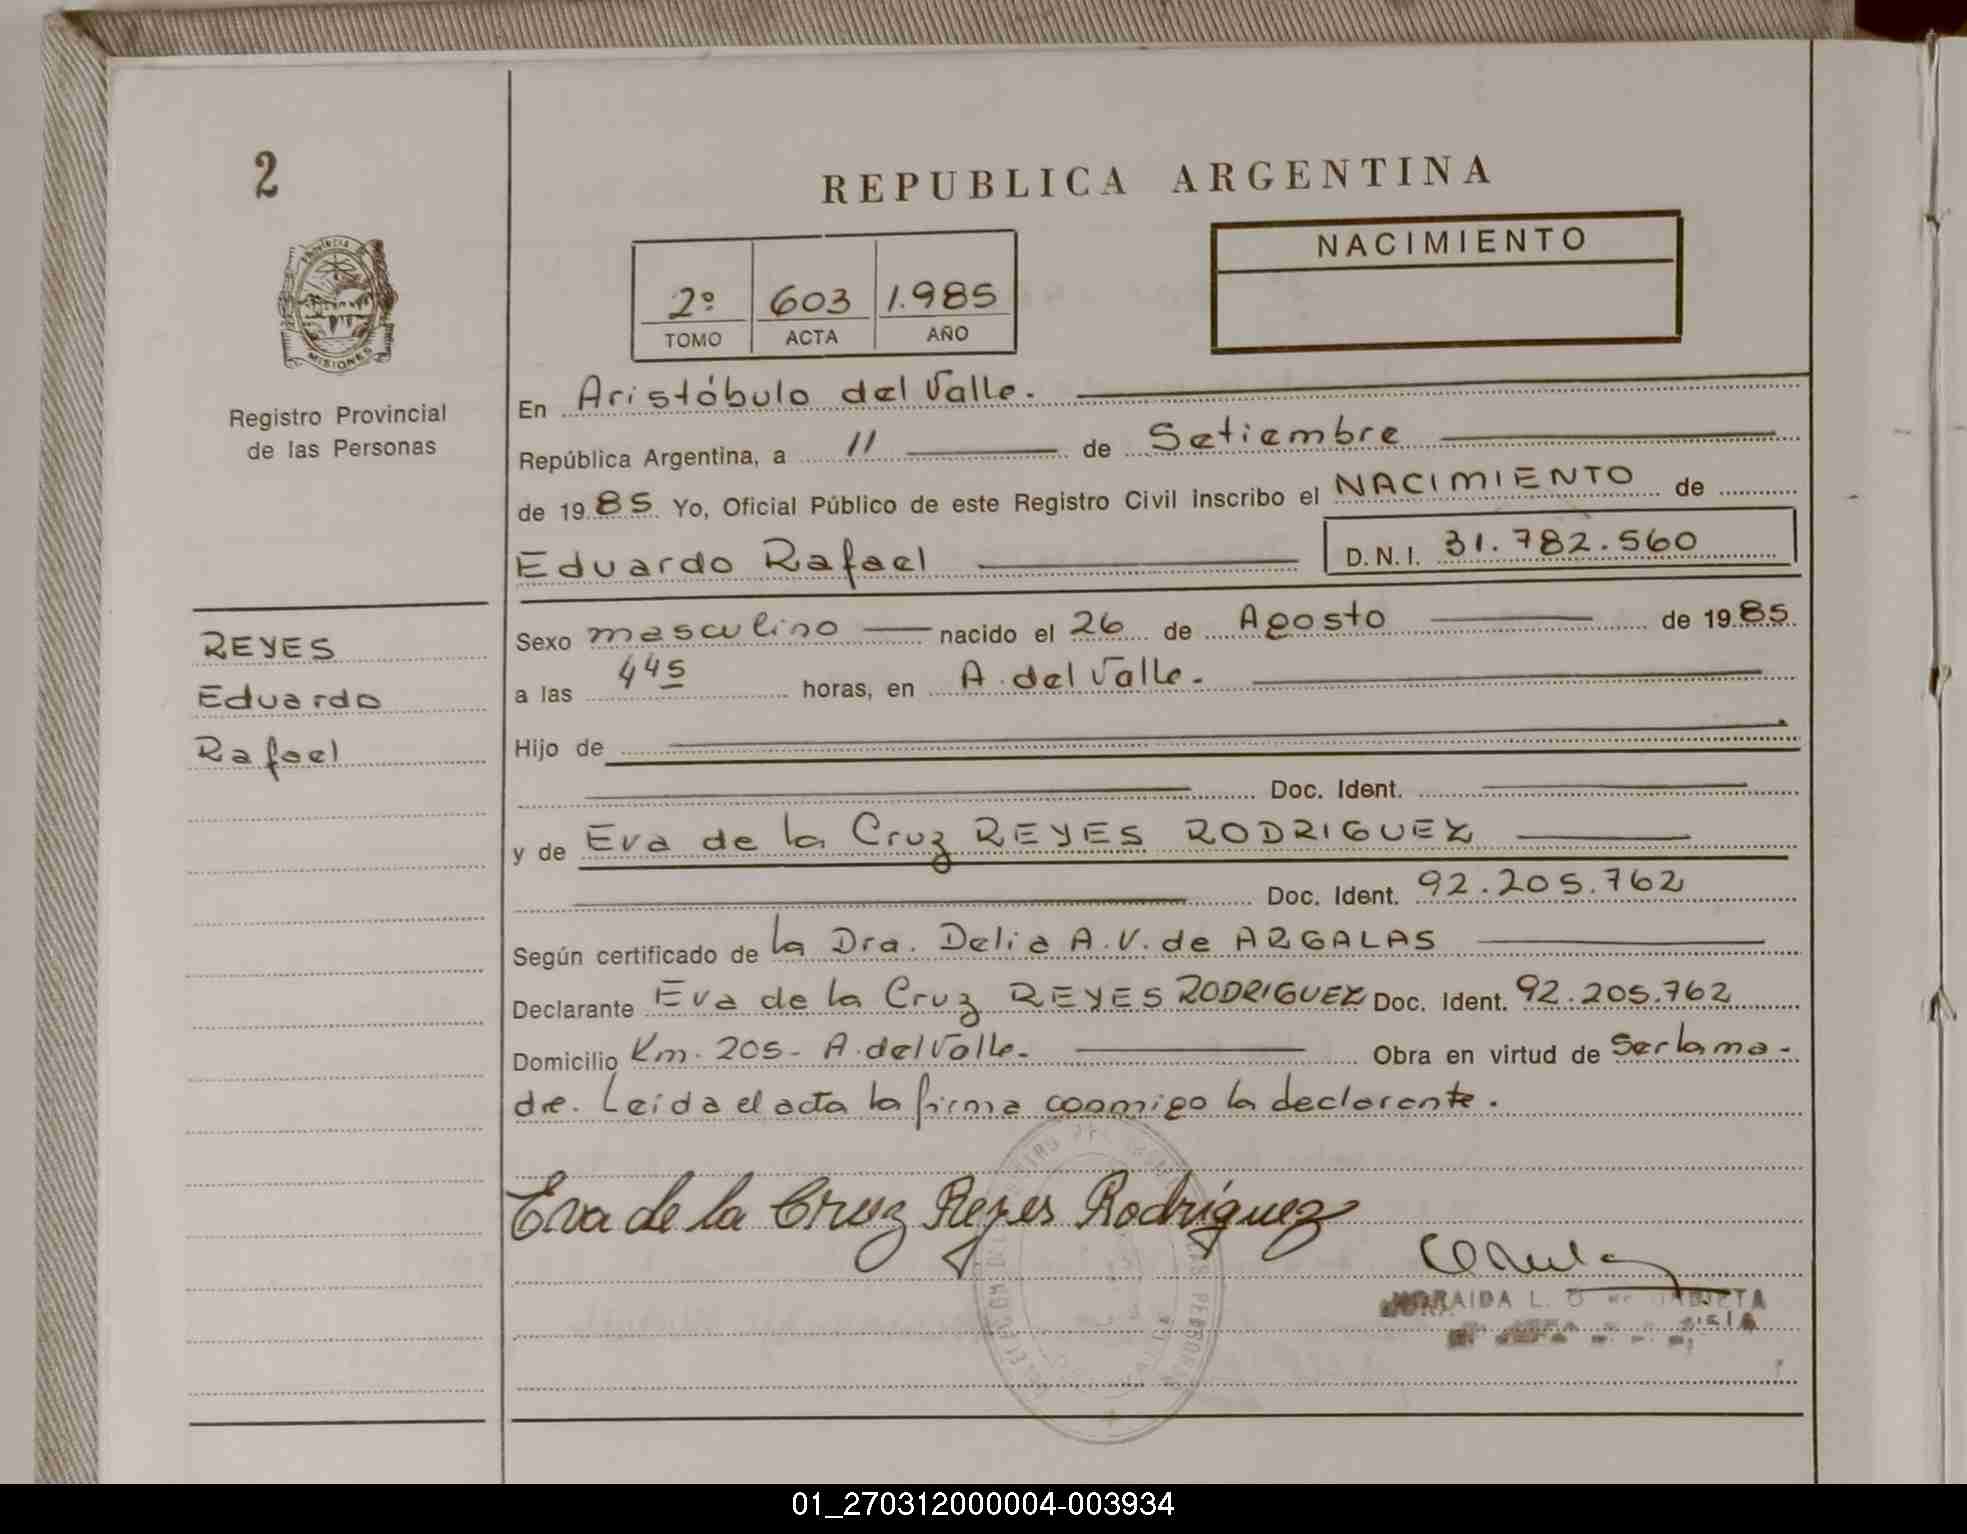 2
REPUBLICA ARGENTINA
PROVINCIA DE
MISIONES
Registro Provincial
de las Personas
2º 603 1.985
TOMO ACTA AÑO
NACIMIENTO
En Aristóbulo del Valle.
República Argentina, a 11 de Setiembre
de 1985 Yo, Oficial Público de este Registro Civil inscribo el NACIMIENTO de
Eduardo Rafael D.N.I. 31.782.560
REYES
Eduardo
Rafael
Sexo masculino nacido el 26 de Agosto de 1985
a las 4 45 horas, en A. del Valle.
Hijo de
Doc. Ident.
y de Eva de la Cruz REYES RODRIGUEZ
Doc. Ident. 92.205.762
Según certificado de la Dra. Delia A.V. de ARGALAS
Declarante Eva de la Cruz REYES RODRIGUEZ Doc. Ident. 92.205.762
Domicilio Km. 205- A. del Valle. Obra en virtud de Ser la ma-
dre. Leida el acta la firma conmigo la declarante.
Eva de la Cruz Reyes Rodríguez
L.
01_270312000004-003934